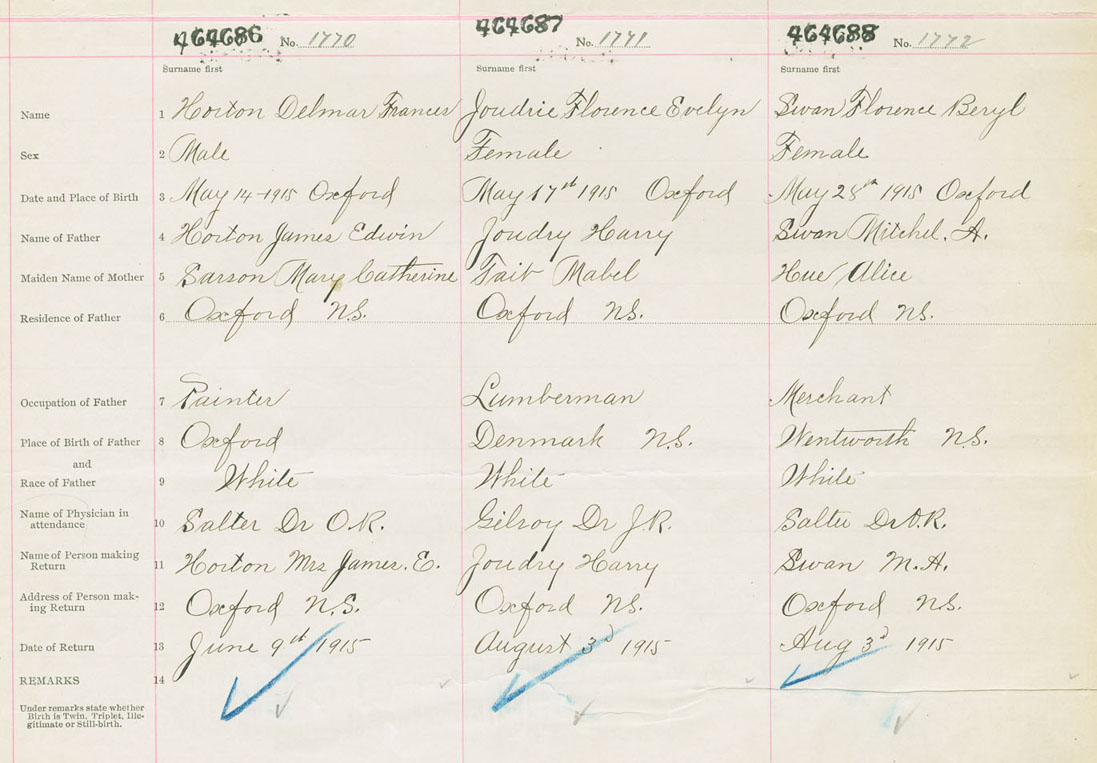 464686 No. 1770 464687 No. 1771 464688 No. 1772
Surname first Surname first Surname first
Name 1 Horton Delmar Frances Joudrie Florence Evelyn Swan Florence Beryl
Sex 2 Male Female Female
Date and Place of Birth 3 May 14-1915 Oxford May 17st 1915 Oxford May 28th 1915 Oxford
Name of Father 4 Horton James Edwin Joudry Harry Swan Mitchel. A.
Maiden Name of Mother 5 Sarson Mary Catherine Tait Mabel Hue Alice
Residence of Father 6 Oxford N.S. Oxford N.S. Oxford N.S.
Occupation of Father 7 Painter Lumberman Merchant
Place of Birth of Father 8 Oxford Denmark N.S. Wentworth N.S.
and
Race of Father 9 White White White
Name of Physician in
attendance 10 Salter Dr O.R. Gilroy Dr J.R. Salter Dr O.R.
Name of Person making
Return 11 Horton Mrs James. E. Joudry Harry Swan M.A.
Address of Person mak-
ing Return 12 Oxford N.S. Oxford N.S. Oxford N.S.
Date of Return 13 June 9th 1915 August 3d 1915 Aug 3d 1915
REMARKS 14
Under remarks state whether
Birth is Twin, Triplet, Ille-
gitimate or Still-birth.